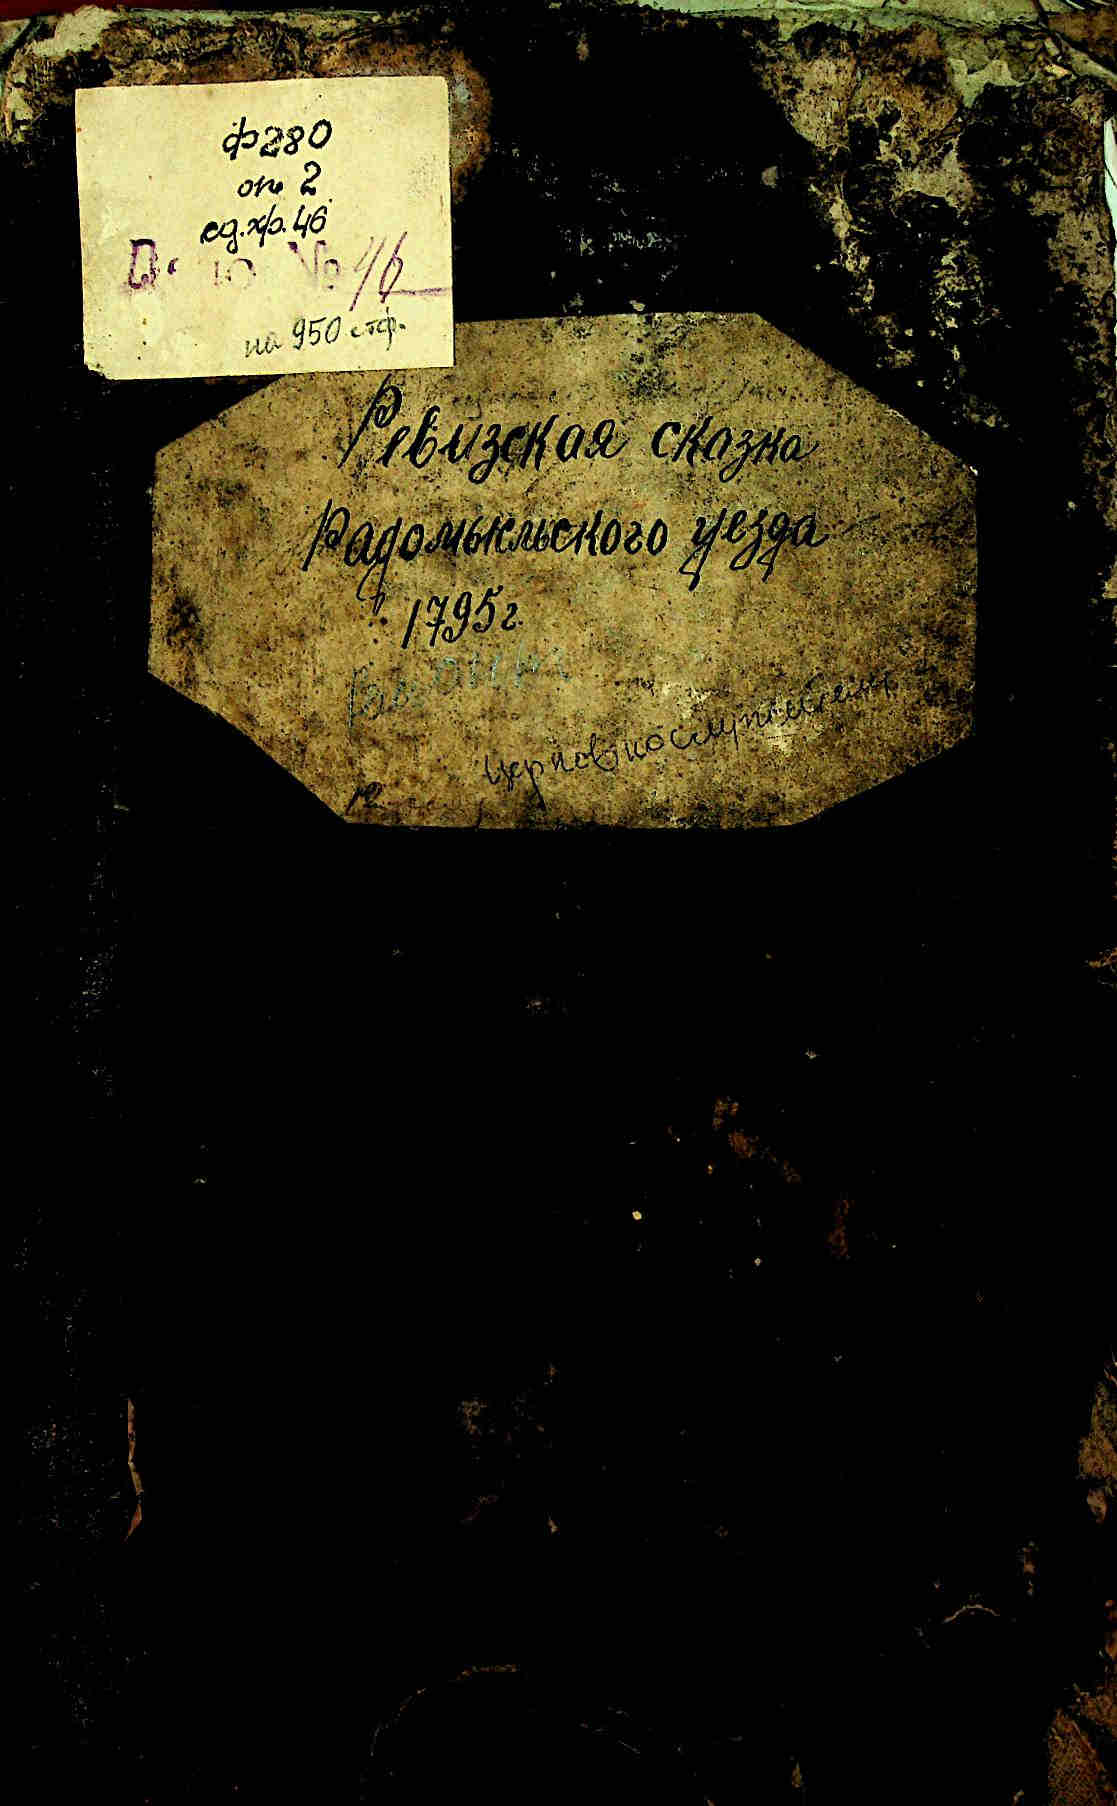 ф 280
оп 2
ед. хр. 46
Дело № 46
на 950 стр.
Ревизская сказка
Радомыкльского уезда
1795 г.
церковнослужители